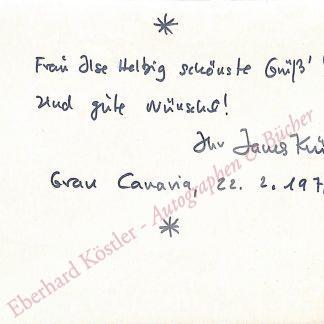 *
Frau Ilse Helbig schönste Grüß'
und gute Wünsche!
Ihr
Gran Canaria, 22. 2. 197
*
Eberhard Köstler - Autographen & Bücher